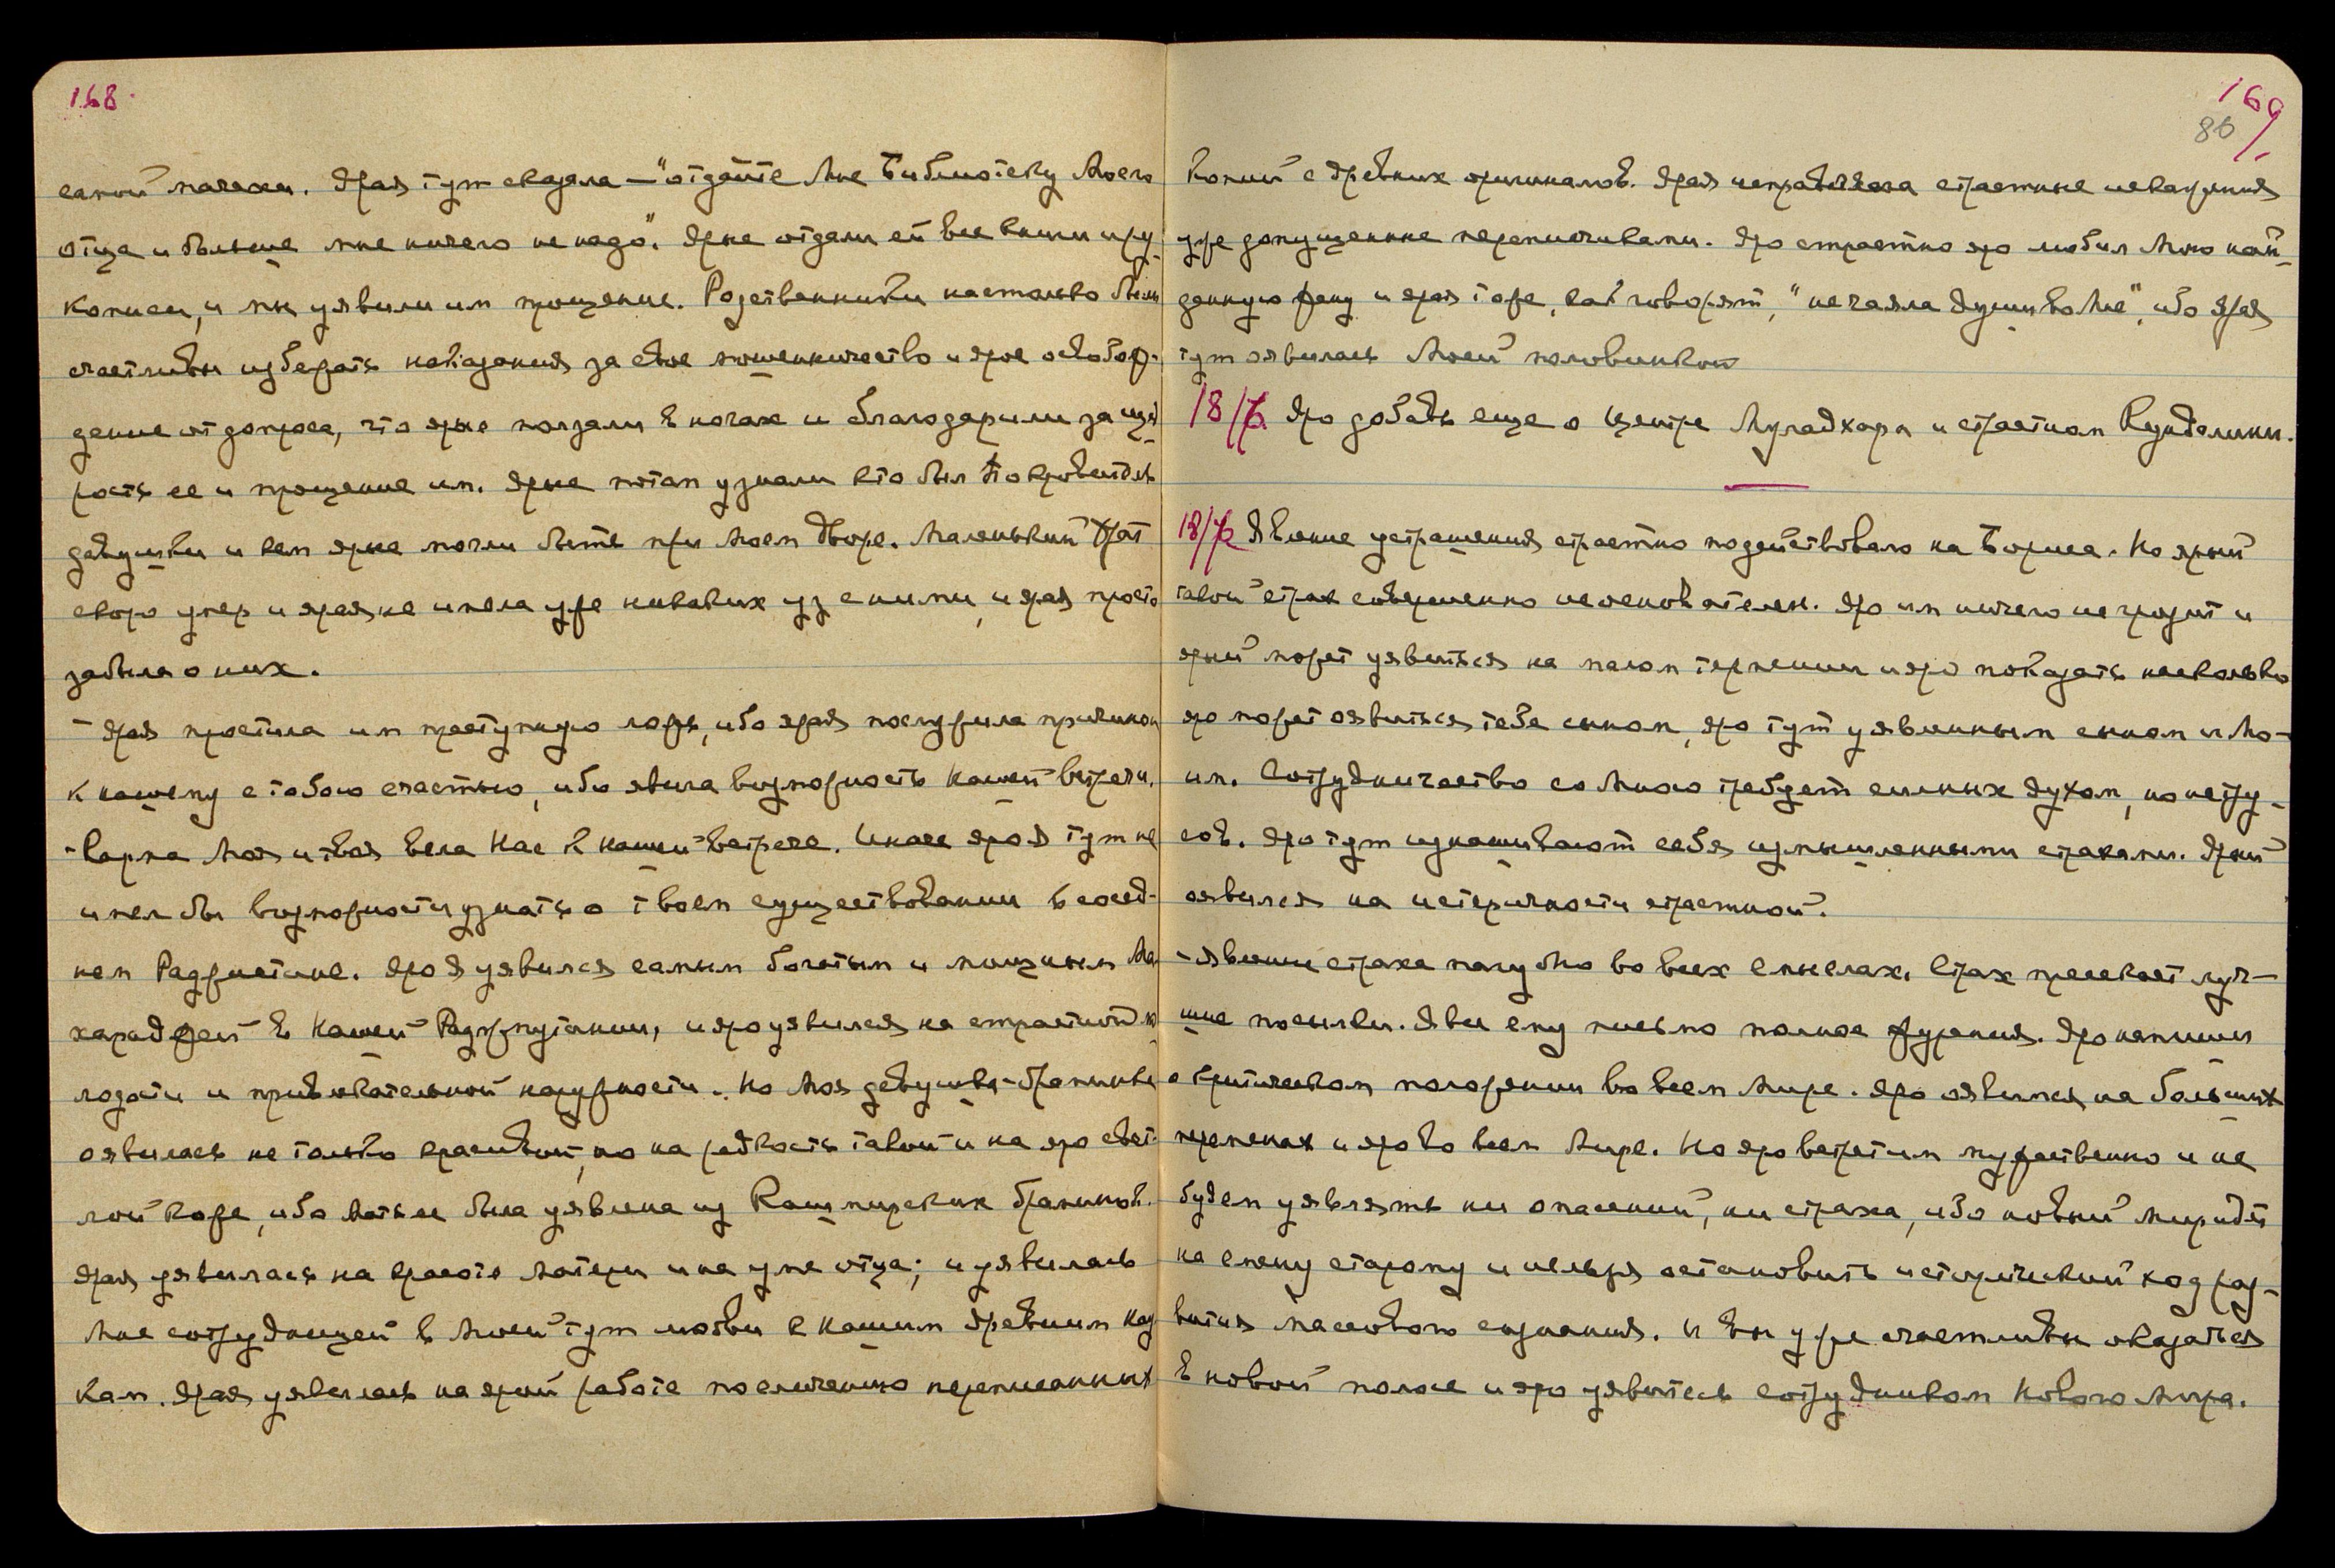 168.
самой мачехи. Ярая тут сказала — "отдайте Мне Библиотеку Моего
отца и больше мне ничего не надо". Ярые отдали ей все книги и ру-
кописи, и мы уявили им прощение. Родственники настолько были
счастливы избежать наказания за свое мошенничество и ярое освобож-
дение от допроса, что ярые ползали в ногах и благодарили за щед-
рость ее и прощение им. Ярые потом узнали кто был Покровитель
девушки и кем ярые могли быть при Моем Дворе. Маленький брат
скоро умер и ярая не имела уже никаких уз с ними, и ярая просто
забыла о них.
- Ярая простила им преступную ложь, ибо ярая послужила причиной
к нашему с тобою счастью, ибо явила возможность нашей встречи.
- Карма Моя и твоя вела Нас к нашей встрече. Иначе яро Я тут не
имел бы возможности узнать о твоем существовании в сосед-
нем Раджистане. Яро Я уявился самым богатым и мощным Ма-
хараджей в Нашей Раджпутании, и яро уявился на страстной мо-
лодости и привлекательной наружности. Но Моя девушка-браминка
оявилась не только красивой, но на редкость такой и на яро свет-
лой коже, ибо Мать ее была уявлена из Кашмирских браминов.
Ярая уявилась на красоте Матери и на уме отца; и уявилась
Мне сотрудницей в Моей тут любви к нашим древним нау-
кам. Ярая уявилась на ярой работе по сличению переписанных
169
86
копий с древних оригиналов. Ярая исправляла страстные искажения
уже допущенные переписчиками. Яро страстно яро любил Мою най-
денную жену и ярая тоже, как говорят, "не чаяла души во Мне", ибо ярая
тут оявилась Моей половинкой
18/ Яро добавь еще о центре Муладхары и страстном Кундалини.
18/ Явление устрашения страстно подействовало на Бориса. Но ярый
такой страх совершенно неоснователен. Яро им ничего не грозит и
ярый может уявиться на малом терпении и яро показать насколько
яро может оявиться тебе сыном, яро тут уявленным сыном и Мо-
им. Сотрудничество со Мною требует сильных духом, но не тру-
сов. Яро тут изнашивают себя измышленными страхами. Ярый
оявился на истеричности страстной.
- Явление страха пагубно во всех смыслах. Страх пресекает луч-
шие посылки. Яви ему письмо полное бурения. Яро напиши
о критическом положении во всем Мире. Яро оявился на больших
переменах и яро во всем Мире. Но яро встретим мужественно и не
будем уявлять ни опасений, ни страха, ибо новый мир идет
на смену старому и нельзя остановить исторический ход раз-
вития массового сознания. И вы уже счастливы оказаться
в новой полосе и яро уявитесь сотрудником Нового Мира.